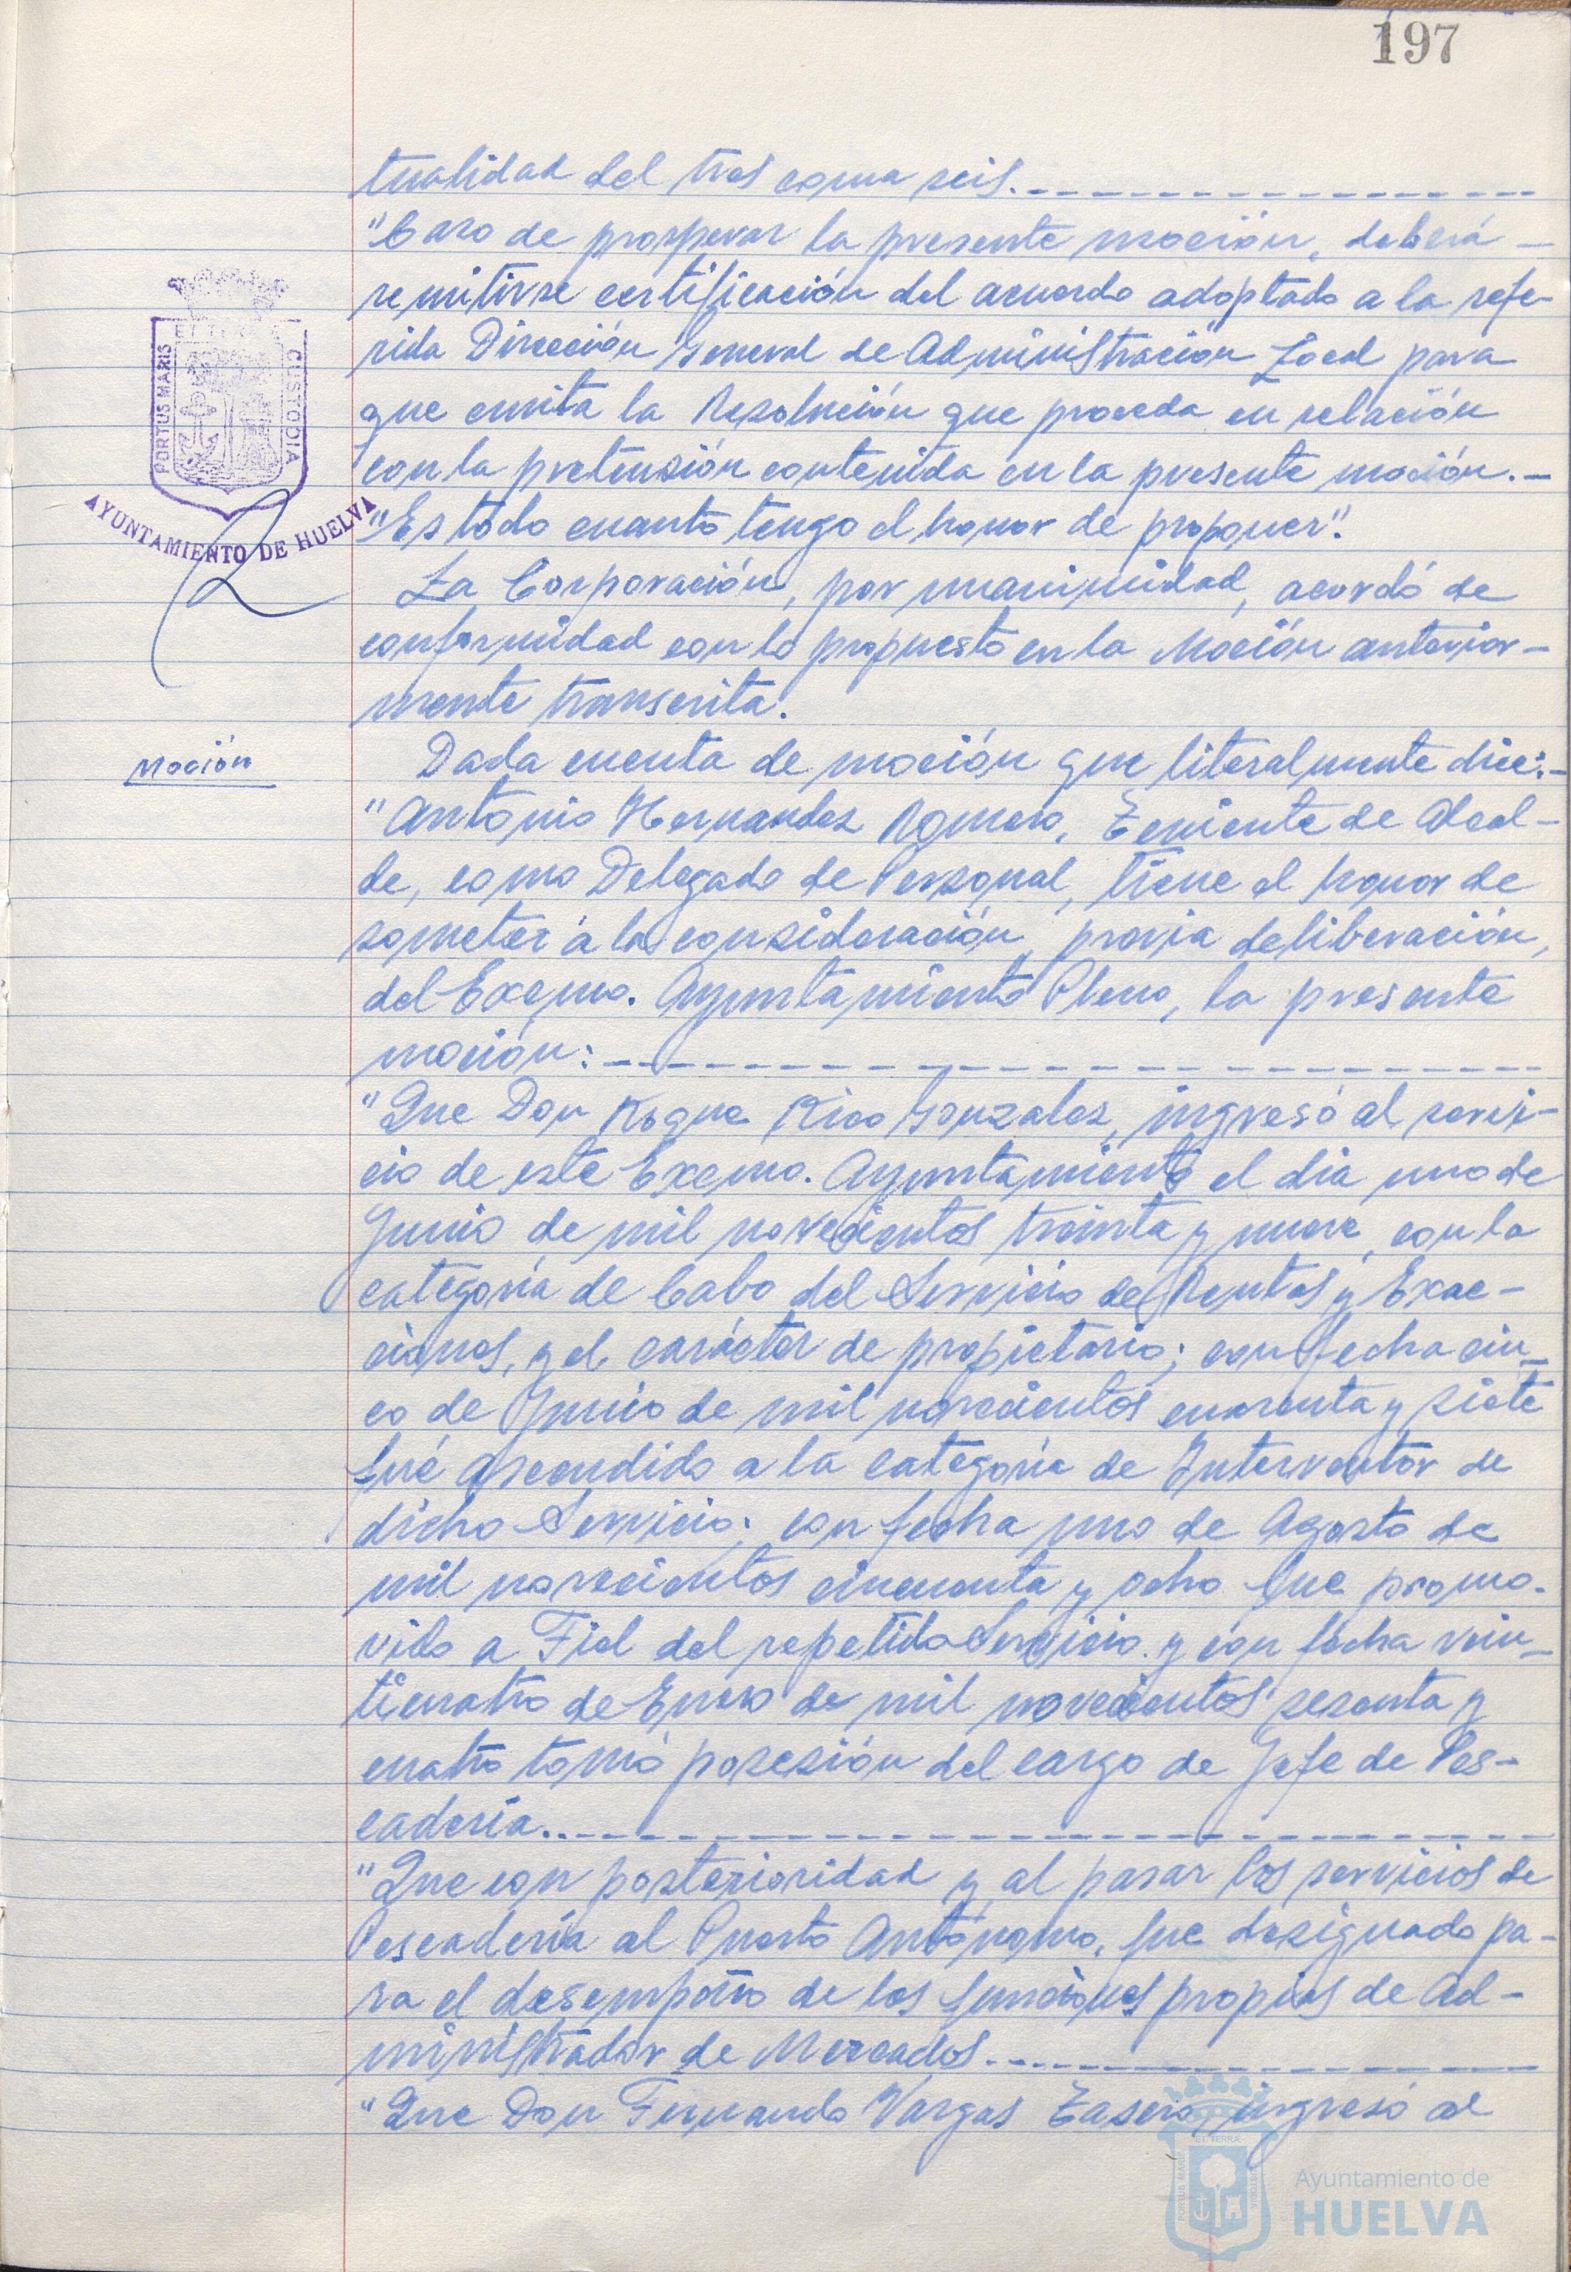 197
tualidad del tres coma seis.
"Caso de prosperar la presente moción, deberá
remitirse certificación del acuerdo adoptado a la refe-
rida Dirección General de Administración Local para
que emita la Resolución que proceda en relación
con la pretensión contenida en la presente moción.-
"Es todo cuanto tengo el honor de proponer".
La Corporación, por unanimidad, acordó de
conformidad con lo propuesto en la Moción anterior-
mente transcrita.
Moción
Dada cuenta de moción que literalmente dice:-
"Antonio Hernandez Romero, Teniente de Alcal-
de, como Delegado de Personal, tiene el honor de
someter a la consideración, previa deliberación,
del Excmo. Ayuntamiento Pleno, la presente
moción:
"Que Don Roque Rico Gonzalez, ingresó al servi-
cio de este Excmo. Ayuntamiento el dia uno de
Junio de mil novecientos treinta y nueve, con la
categoría de Cabo del Servicio de Rentas y Exac-
ciones, y el carácter de propietario; con fecha cin-
co de Junio de mil novecientos cuarenta y siete
fué ascendido a la categoría de Interventor de
dicho Servicio; con fecha uno de Agosto de
mil novecientos cincuenta y ocho fue promo-
vido a Fiel del repetido Servicio y con fecha vein-
ticuatro de Enero de mil novecientos sesenta y
cuatro tomó posesión del cargo de Jefe de Pes-
cadería.
"Que con posterioridad y al pasar los servicios de
Pescadería al Puerto Autónomo, fue designado pa-
ra el desempeño de las funciones propias de Ad-
ministrador de Mercados.
"Que Don Fernando Vargas Tasero, ingresó al
PORTUS MARIS
ET TERRAE
CUSTODIA
AYUNTAMIENTO DE HUELVA
Ayuntamiento de
HUELVA